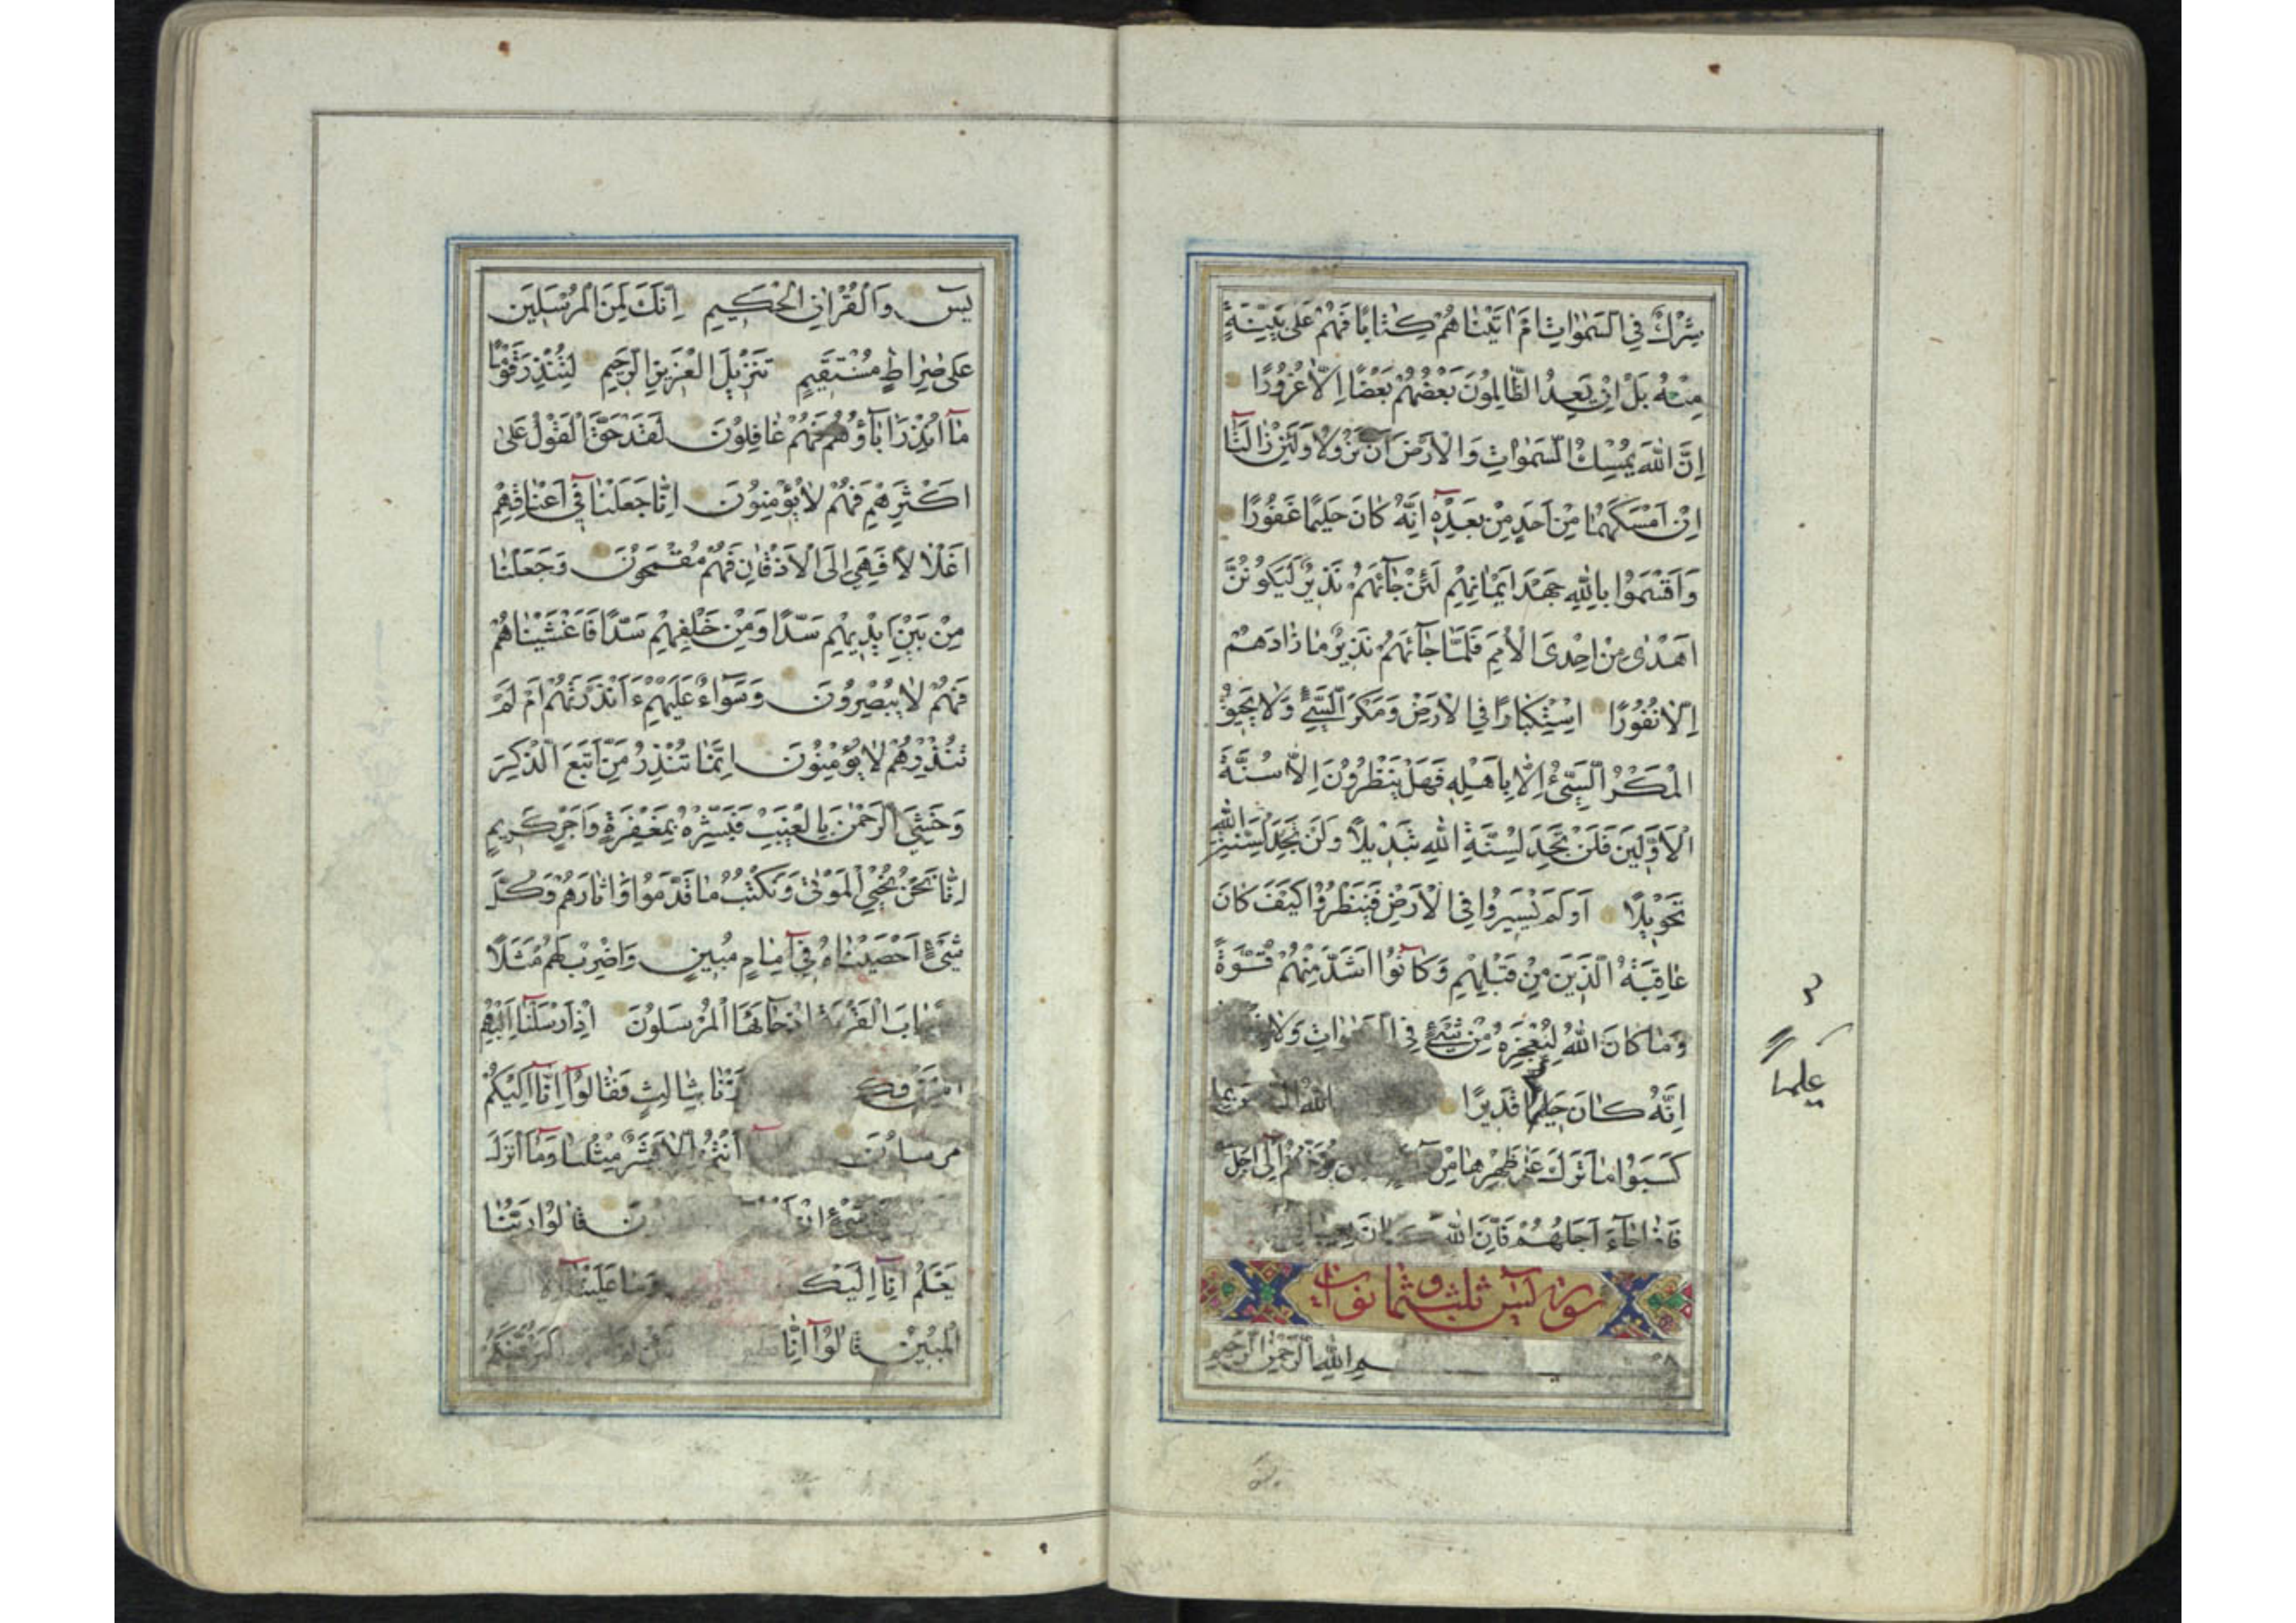 شِرْكٌ فِي السَّمٰوَاتِ اَمْ اٰتَيْنَاهُمْ كِتَابًا فَهُمْ عَلٰى بَيِّنَةٍ
مِنْهُ بَلْ اِنْ يَعِدُ الظَّالِمُونَ بَعْضُهُمْ بَعْضًا اِلَّا غُرُورًا
اِنَّ اللّٰهَ يُمْسِكُ السَّمٰوَاتِ وَالْاَرْضَ اَنْ تَزُولَا وَلَئِنْ زَالَتَا
اِنْ اَمْسَكَهُمَا مِنْ اَحَدٍ مِنْ بَعْدِهٖ اِنَّهُ كَانَ حَلِيمًا غَفُورًا
وَاَقْسَمُوا بِاللّٰهِ جَهْدَ اَيْمَانِهِمْ لَئِنْ جَائَهُمْ نَذِيرٌ لَيَكُونُنَّ
اَهْدٰى مِنْ اِحْدَى الْاُمَمِ فَلَمَّا جَائَهُمْ نَذِيرٌ مَا زَادَهُمْ
اِلَّا نُفُورًا اسْتِكْبَارًا فِي الْاَرْضِ وَمَكْرَ السَّيِّئِ وَلَا يَحِيقُ
الْمَكْرُ السَّيِّئُ اِلَّا بِاَهْلِهٖ فَهَلْ يَنْظُرُونَ اِلَّا سُنَّةَ
الْاَوَّلِينَ فَلَنْ تَجِدَ لِسُنَّةِ اللّٰهِ تَبْدِيلًا وَلَنْ تَجِدَ لِسُنَّةِ اللّٰهِ
تَحْوِيلًا اَوَلَمْ يَسِيرُوا فِي الْاَرْضِ فَيَنْظُرُوا كَيْفَ كَانَ
عَاقِبَةُ الَّذِينَ مِنْ قَبْلِهِمْ وَكَانُوا اَشَدَّ مِنْهُمْ قُوَّةً
وَمَا كَانَ اللّٰهُ لِيُعْجِزَهُ مِنْ شَيْءٍ فِي السَّمٰوَاتِ وَلَا
اِنَّهُ كَانَ حَلِيمًا قَدِيرًا اللّٰهُ
كَسَبُوا مَا تَرَكَ عَلٰى ظَهْرِهَا مِنْ يُؤَخِّرُهُمْ اِلٰى اَجَلٍ
فَاِذَا جَاءَ اَجَلُهُمْ فَاِنَّ اللّٰهَ كَانَ
سورة يس ثلث وثمانون آيات
بسم الله الرحمن الرحيم
عليما
يٰسٓ وَالْقُرْاٰنِ الْحَكِيمِ اِنَّكَ لَمِنَ الْمُرْسَلِينَ
عَلٰى صِرَاطٍ مُسْتَقِيمٍ تَنْزِيلَ الْعَزِيزِ الرَّحِيمِ لِتُنْذِرَ قَوْمًا
مَا اُنْذِرَ اٰبَاؤُهُمْ فَهُمْ غَافِلُونَ لَقَدْ حَقَّ الْقَوْلُ عَلٰى
اَكْثَرِهِمْ فَهُمْ لَا يُؤْمِنُونَ اِنَّا جَعَلْنَا فِي اَعْنَاقِهِمْ
اَغْلَالًا فَهِيَ اِلَى الْاَذْقَانِ فَهُمْ مُقْمَحُونَ وَجَعَلْنَا
مِنْ بَيْنِ اَيْدِيهِمْ سَدًّا وَمِنْ خَلْفِهِمْ سَدًّا فَاَغْشَيْنَاهُمْ
فَهُمْ لَا يُبْصِرُونَ وَسَوَاءٌ عَلَيْهِمْ ءَاَنْذَرْتَهُمْ اَمْ لَمْ
تُنْذِرْهُمْ لَا يُؤْمِنُونَ اِنَّمَا تُنْذِرُ مَنِ اتَّبَعَ الذِّكْرَ
وَخَشِيَ الرَّحْمٰنَ بِالْغَيْبِ فَبَشِّرْهُ بِمَغْفِرَةٍ وَاَجْرٍ كَرِيمٍ
اِنَّا نَحْنُ نُحْيِ الْمَوْتٰى وَنَكْتُبُ مَا قَدَّمُوا وَاٰثَارَهُمْ وَكُلَّ
شَيْءٍ اَحْصَيْنَاهُ فِي اِمَامٍ مُبِينٍ وَاضْرِبْ لَهُمْ مَثَلًا
الْقَرْيَةِ اِذْ جَائَهَا الْمُرْسَلُونَ اِذْ اَرْسَلْنَا اِلَيْهِمُ
بِثَالِثٍ فَقَالُوا اِنَّا اِلَيْكُمْ
اَنْتُمْ اِلَّا بَشَرٌ مِثْلُنَا وَمَا اَنْزَلَ
شَيْءٍ اِنْ قَالُوا رَبُّنَا
يَعْلَمُ اِنَّا اِلَيْكُ وَمَا عَلَيْنَا
الْمُبِينُ قَالُوا اِنَّا